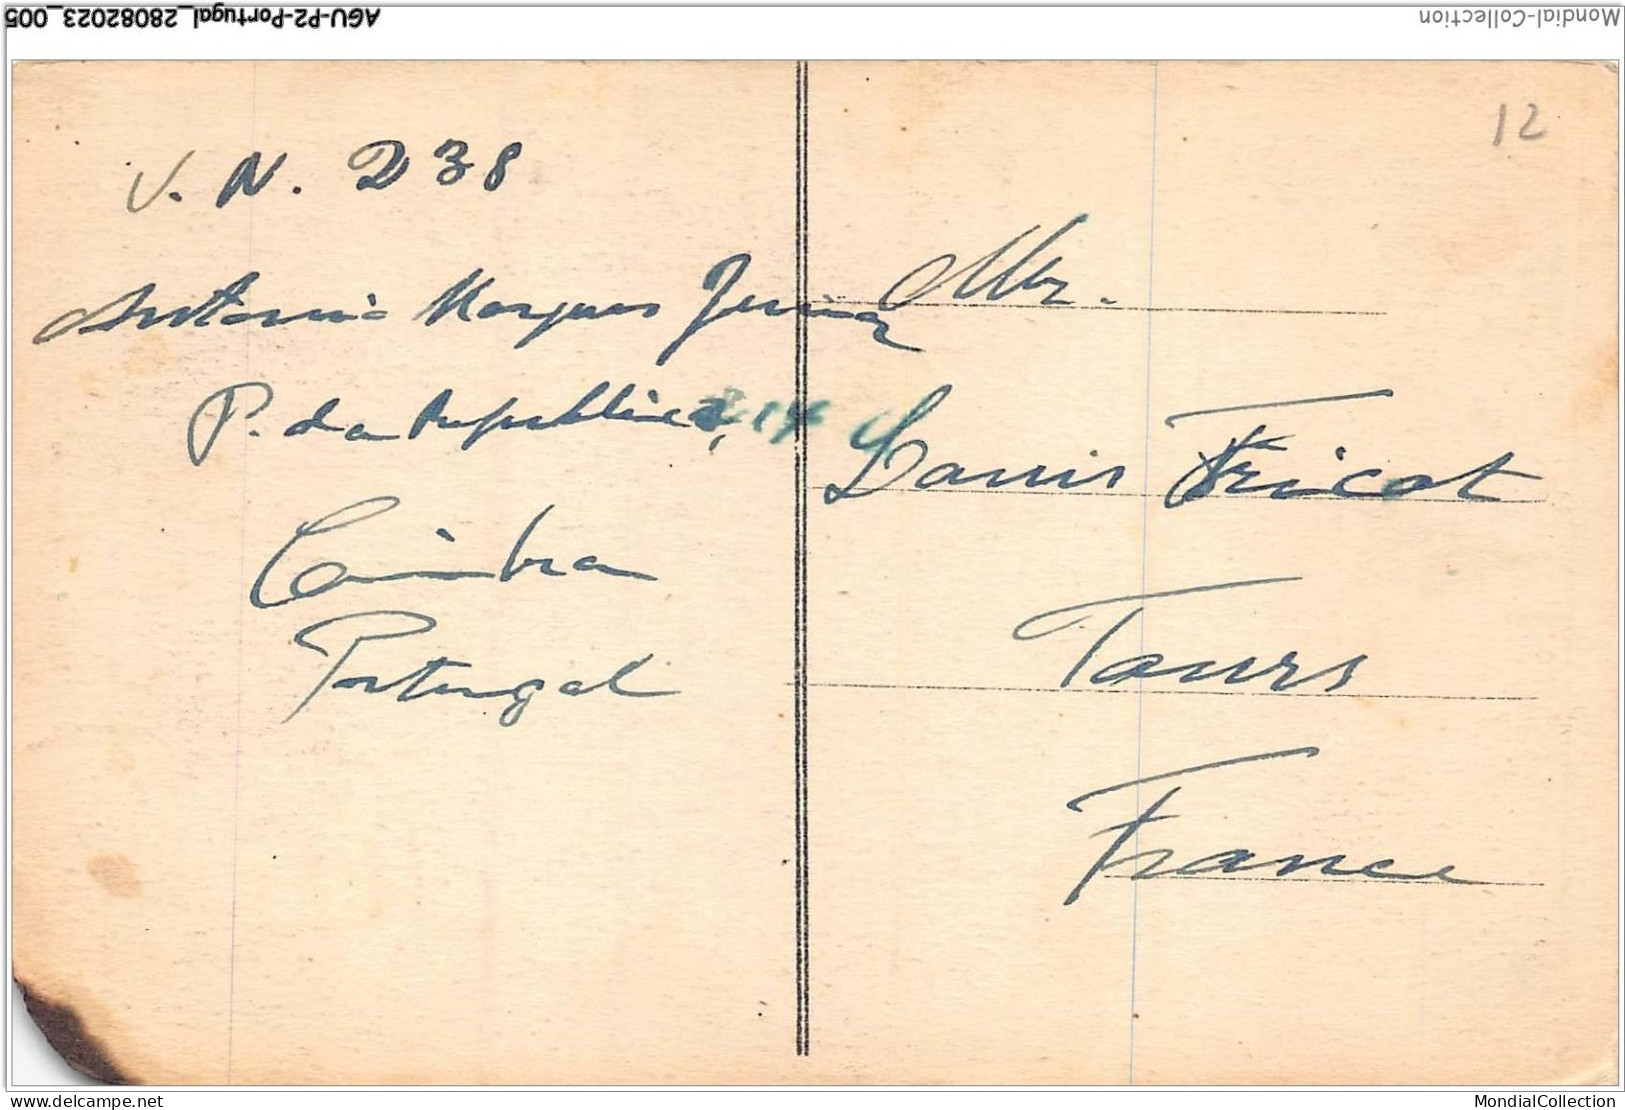 Mondial-Collection
AGU-P2-Portugal_28082023_005
12
V. N. D 38
Antonio Marques Junior
P. da Republica, 14
Coimbra
Portugal
Mr.
Louis Fricot
Tours
France
delcampe.net
MondialCollection